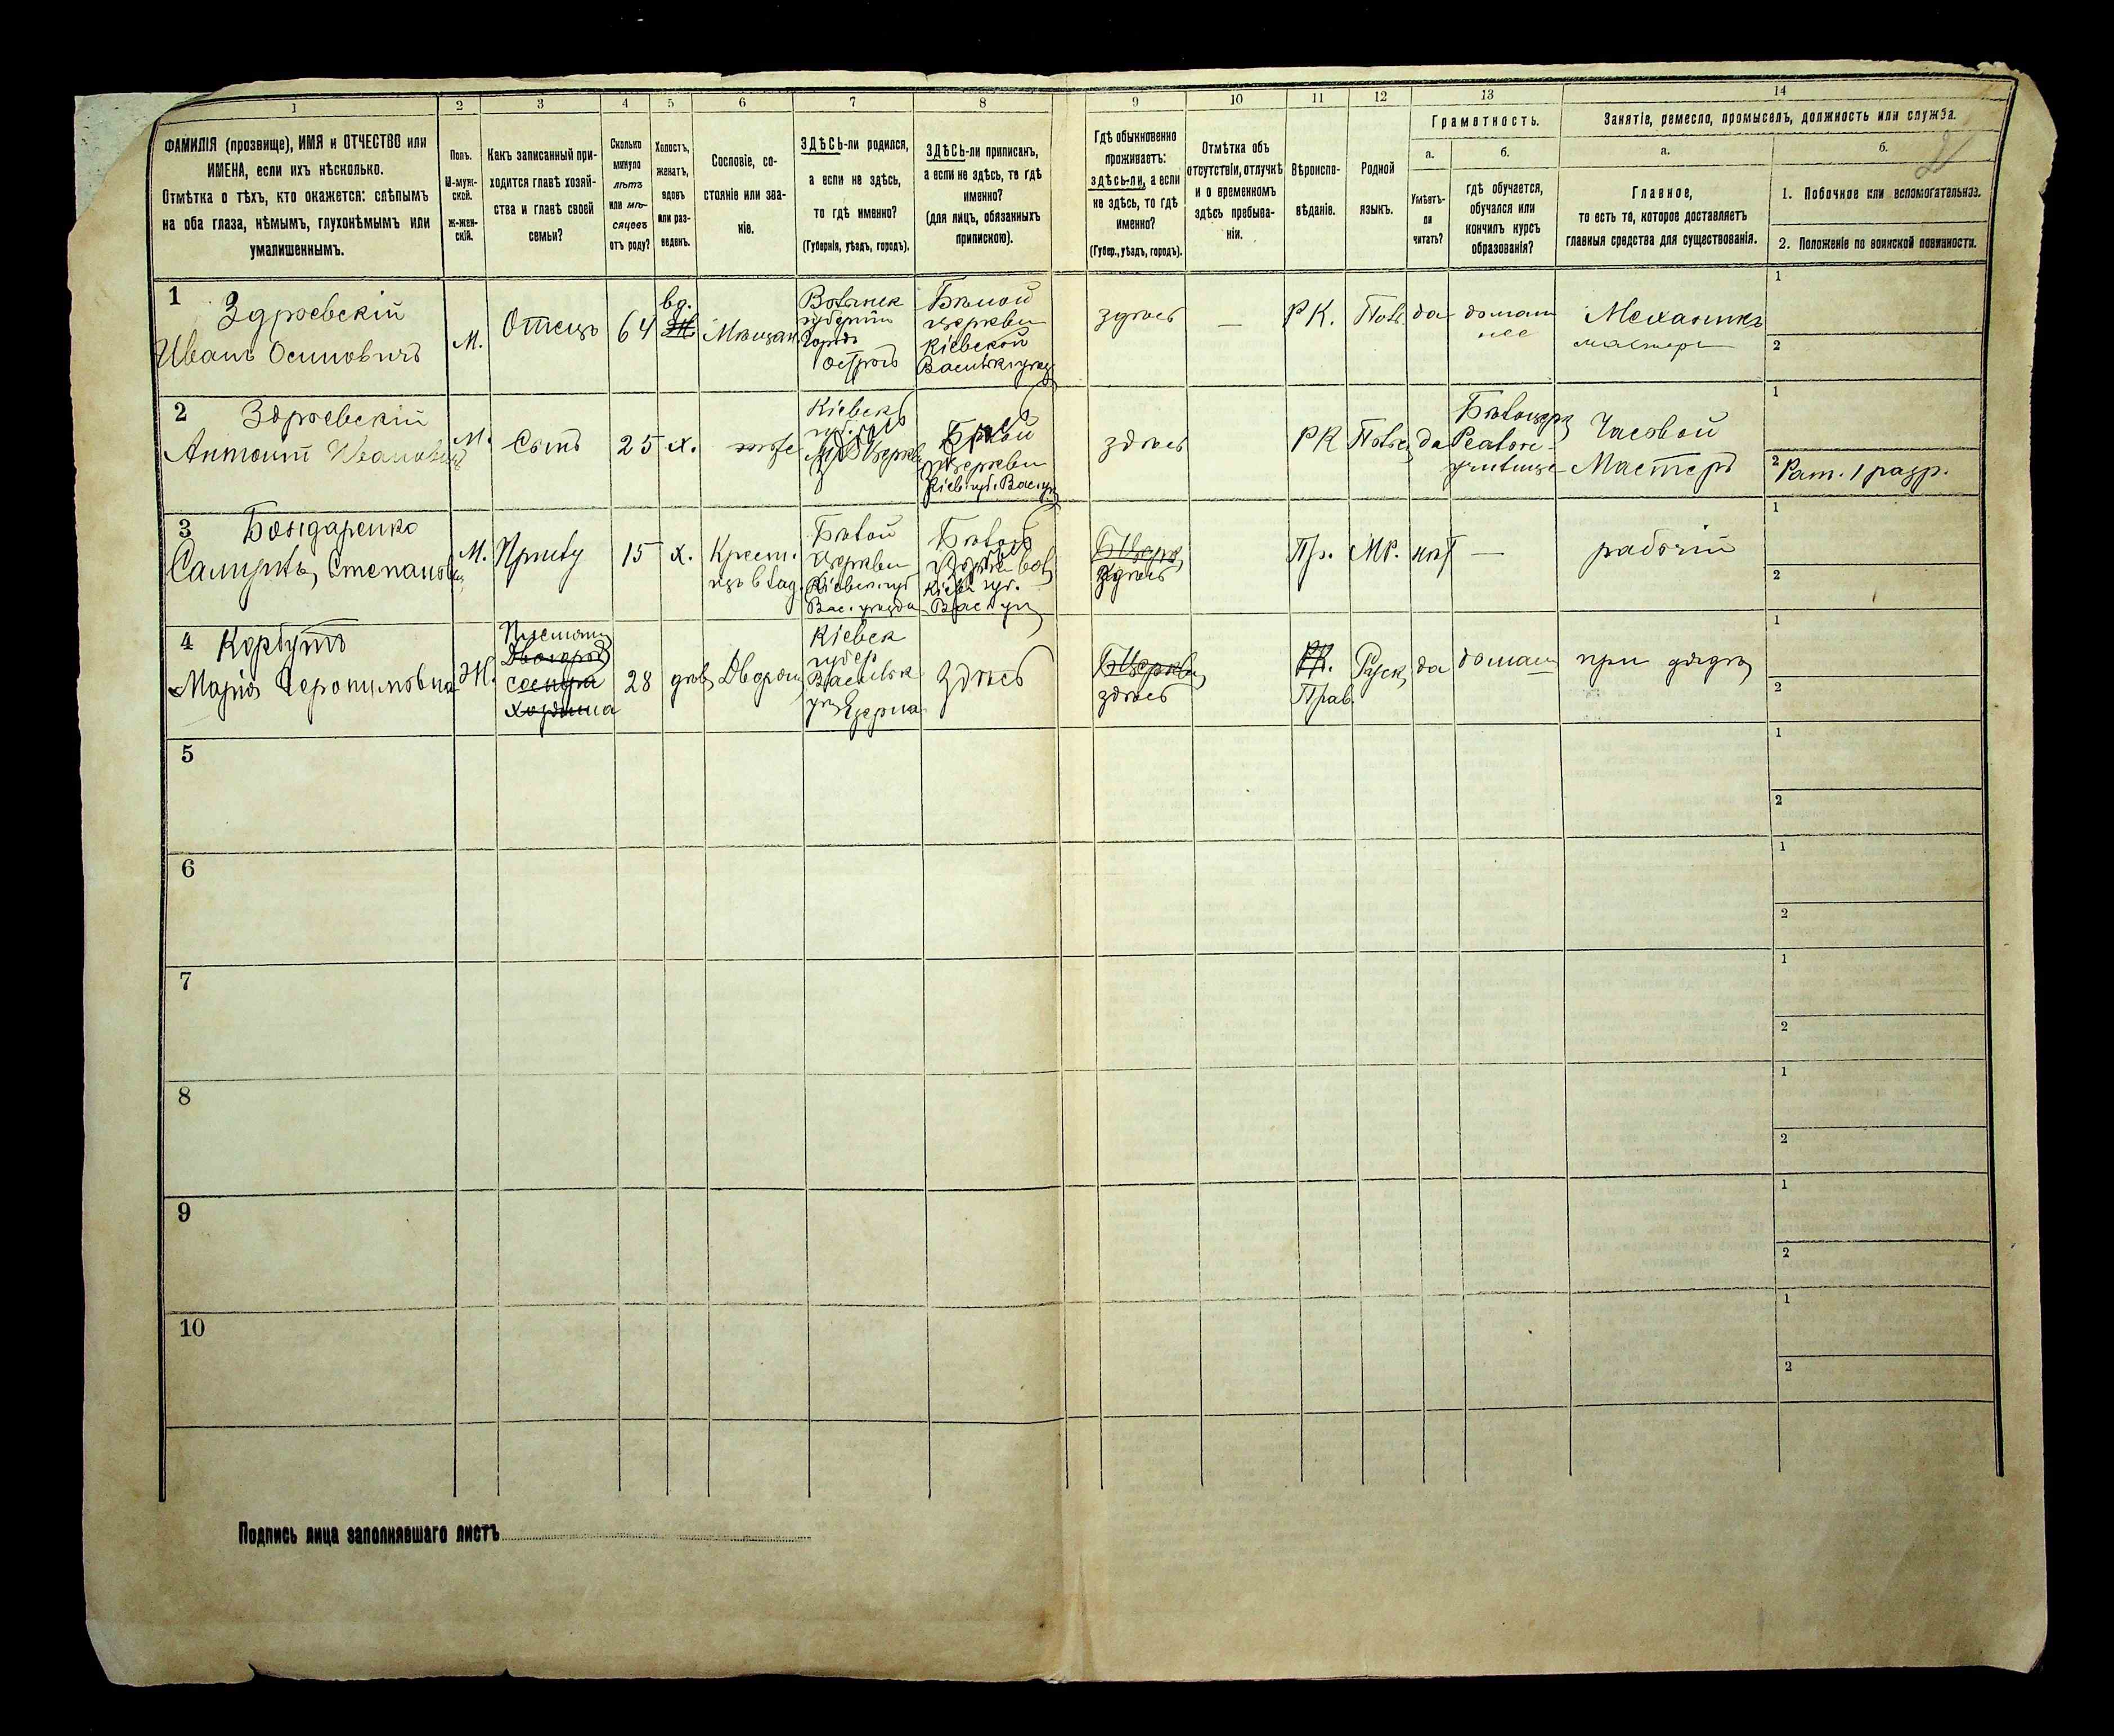 1 2 3 4 5 6 7 8 9 10 11 12 13 14
ФАМИЛІЯ (прозвище), ИМЯ и ОТЧЕСТВО или
ИМЕНА, если ихъ нѣсколько.
Отмѣтка о тѣхъ, кто окажется: слѣпымъ
на оба глаза, нѣмымъ, глухонѣмымъ или
умалишеннымъ.
Полъ.
М-муж-
ской.
Ж-жен-
скій.
Какъ записанный при-
ходится главѣ хозяй-
ства и главѣ своей
семьи?
Сколько
минуло
лѣтъ
или мѣ-
сяцевъ
отъ роду?
Холостъ,
женатъ,
вдовъ
или раз-
веденъ.
Сословіе, со-
стояніе или зва-
ніе.
ЗДѢСЬ-ли родился,
а если не здѣсь,
то гдѣ именно?
(Губернія, уѣздъ, городъ).
ЗДѢСЬ-ли приписанъ,
а если не здѣсь, то гдѣ
именно?
(для лицъ, обязанныхъ
припискою).
Гдѣ обыкновенно
проживаетъ:
здѣсь-ли, а если
не здѣсь, то гдѣ
именно?
(Губер., уѣздъ, городъ).
Отмѣтка объ
отсутствіи, отлучкѣ
и о временномъ
здѣсь пребыва-
ніи.
Вѣроиспо-
вѣданіе.
Родной
языкъ.
Грамотность.
а.
Умѣетъ-
ли
читать?
б.
гдѣ обучается,
обучался или
кончилъ курсъ
образованія?
Занятіе, ремесло, промыселъ, должность или служба.
а.
Главное,
то есть то, которое доставляетъ
главныя средства для существованія.
б.
1. Побочное или вспомогательное.
2. Положеніе по воинской повинности.
1
Здроевскій
Иванъ Осиповичъ
М.
Отецъ
64
вд.
Мѣщан
Волынск
губерніи
Городъ
Острогъ
Бѣлой
церкви
Кіевской
здѣсь
—
РК.
Пол.
да
домаш
нее
Механикъ
мастеръ
1
2
2
Здроевскій
Антонъ Иванович
М.
Сынъ
25
х.
тоже
Кіевск
Церкви
церкви
здѣсь
РК
да
училище
Часовой
Мастеръ
1
2 Рат. 1 разр.
3
Бондаренко
М.
15
х.
Крест.
Бѣлой
Церкви
Кіевск. губ
Вас. уѣзда
Бѣлой
Кіев губ.
здѣсь
Пр.
МР.
нѣт
—
рабочій
1
2
4
Корбутъ
Марія Іеронимовна
Ж.
28
Дворян
Кіевск
губер
Васильк
здѣсь
Б Церкви
здѣсь
РК.
Прав.
Руск
да
домаш
при дядѣ
1
2
5
1
2
6
1
2
7
1
2
8
1
2
9
1
2
10
1
2
Подпись лица заполнявшаго листъ